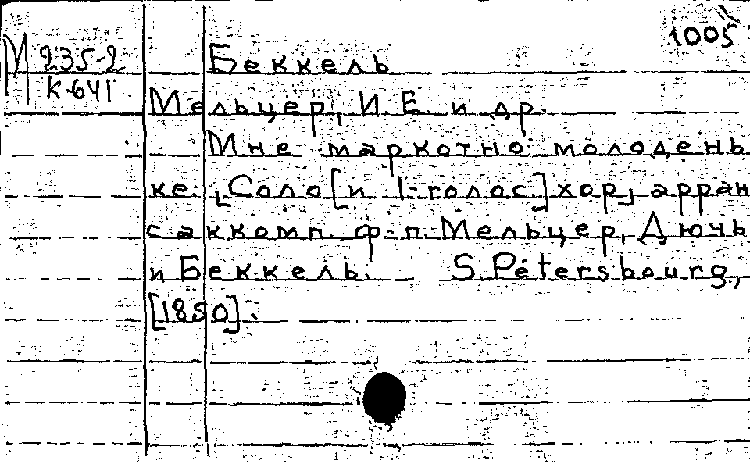 1005
М 235-2
К-641
Беккель
Мельцер, И.Е. и др.
Мне маркотно молодень
ке. [Соло [и 1-голос] хор] арран
с аккомп. ф-п. Мельцер, Дючь
и Беккель. S. Pétersbourg,
[1850].